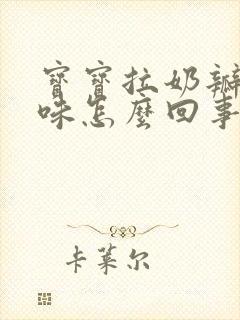 寶寶拉奶瓣
味怎麼回事
卡萊尔